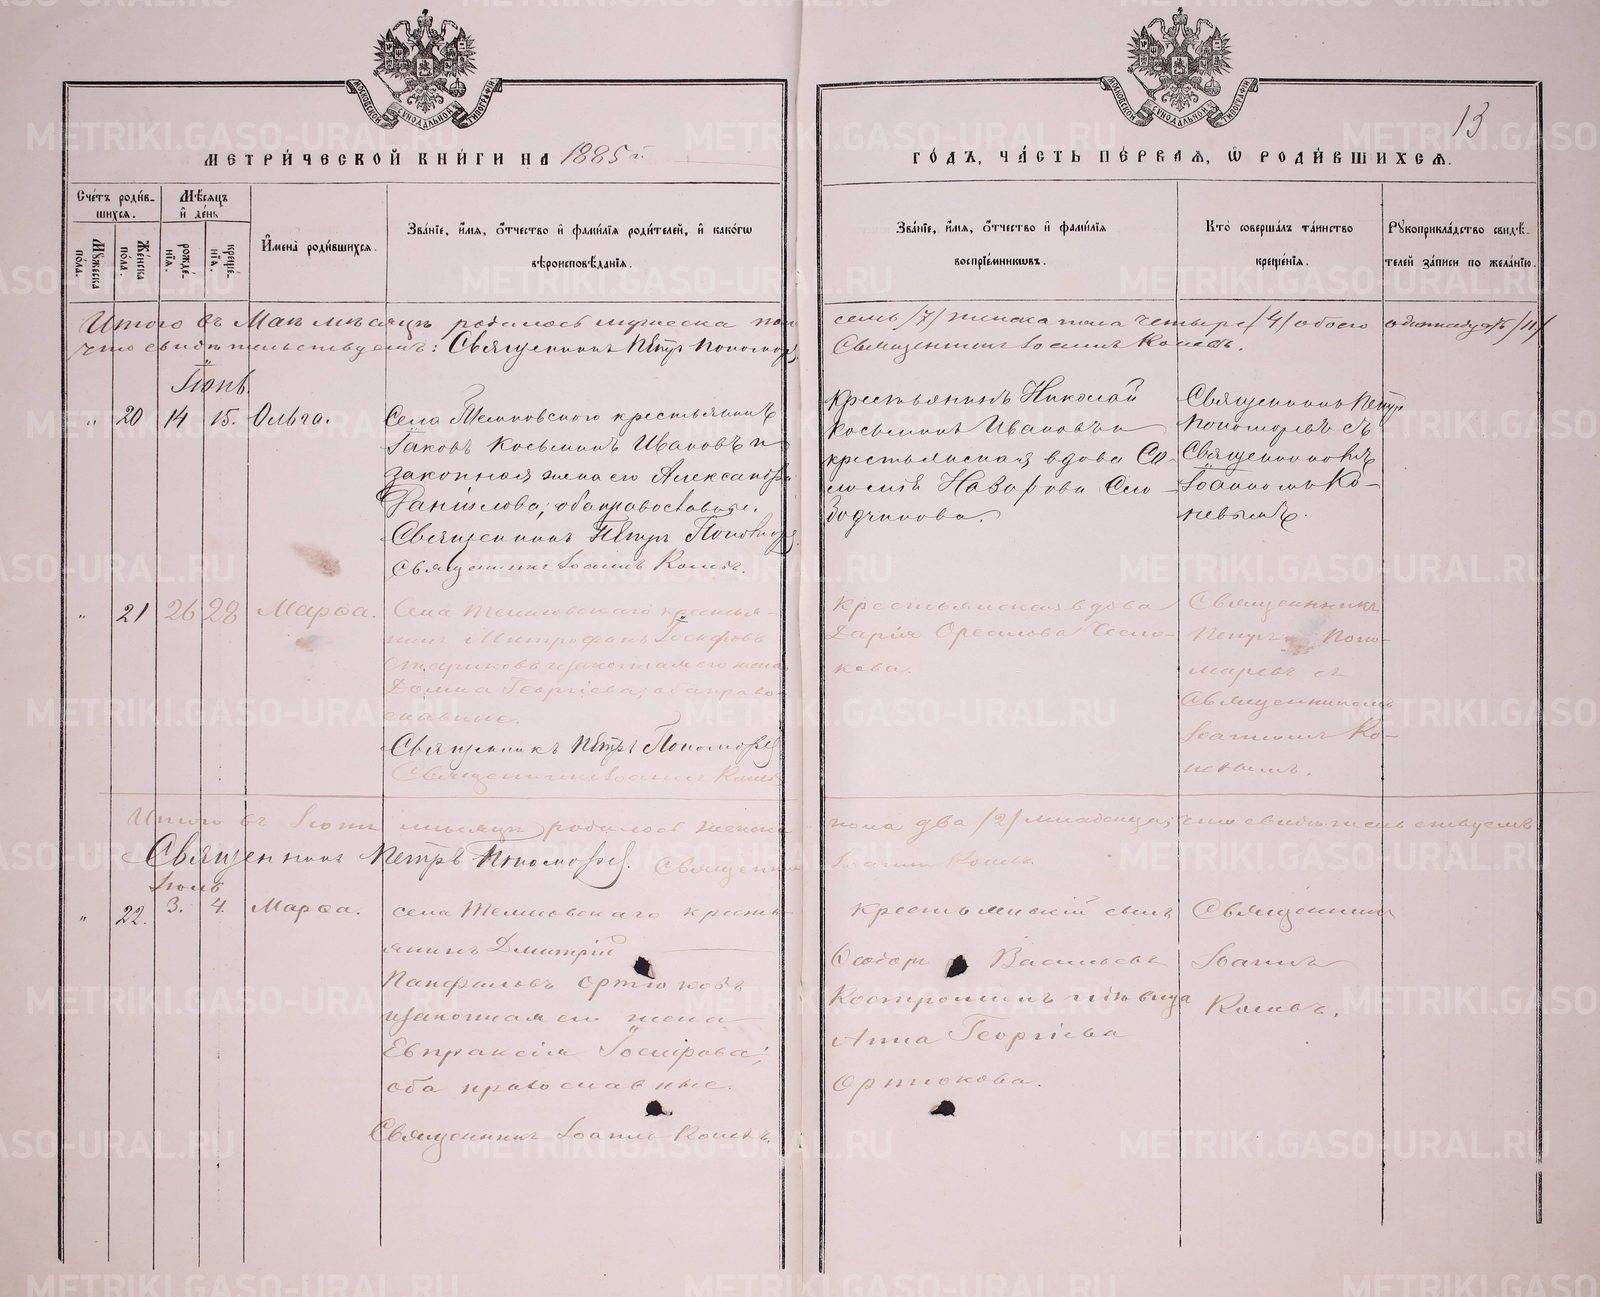 МОСКОВСКОЙ СѴНОДАЛЬНОЙ ТИПОГРАФІИ
МЕТРИ́ЧЕСКОЙ КНИ́ГИ НА 1885 г.
Сче́тъ роди́в-
шихся.
Мѣ́сяцъ
и҆ де́нь
Мꙋжеска по́ла.
Же́нска по́ла.
рожде́-
нїѧ.
креще́-
нїѧ.
И҆мена̀ роди́вшихсѧ.
Зва́нїе, и҆́мѧ, ѻ҆́тчество и҆ фамѝлїѧ роди́телей, и҆ како́гѡ
вѣроисповѣ́данїѧ.
Итого въ Маѣ мѣсяцѣ родилось мужеска пол
что свидѣтельствуемъ: Священникъ Петръ Пономаре
Іюнь
" 20 14 15. Ольга. Села Темновского крестьянинъ
Іаковъ Косьминъ Ивановъ и
законная жена его Александра
Данилова, оба православн.
Священникъ Петръ Пономаре
Священникъ Іоаннъ Коневъ.
" 21 26 28 Марѳа. Села Темновскаго крестья-
нинъ Митрофанъ Іосифовъ
Стариковъ и законная его жена
Домна Георгіева, оба право-
славные.
Священникъ Петръ Пономаре
Священникъ Іоаннъ Коневъ
Итого въ Іюнѣ мѣсяцѣ родилось женска
Священникъ Петръ Пономарев. Священник
Іюль
" 22. 3. 4. Марѳа. села Темновскаго кресть-
янинъ Дмитрій
Панфиловъ Ортюковъ
и законная его жена
Евпраксія Іосифова;
оба православные.
Священникъ Іоаннъ Коневъ.
13
ГО́ДЪ, ЧА́СТЬ ПЕ́РВАЯ, Ѿ РОДИ́ВШИХСЯ.
Зва́нїе, и҆́мѧ, ѻ҆́тчество и҆ фамѝлїѧ
воспрїе́мникѡвъ.
Кто̀ соверша́лъ та́инство
креще́нїѧ.
Рꙋкоприкла́дство свидѣ́-
телей за́писи по жела́нїю.
семь /7/ женска пола четыре /4/ обоего одиннадцать /11/
Священникъ Іоаннъ Коневъ.
Крестьянинъ Николай
Косьминъ Ивановъ и
крестьянская вдова Со-
ломія Назарова Сло-
бодчикова.
Священникъ Петръ
Пономаревъ съ
Священникомъ
Іоанномъ Ко-
невымъ.
Крестьянская вдова
Дарія
кова.
Священникъ
Петръ Поно-
маревъ съ
Священникомъ
Іоанномъ Ко-
невымъ.
пола два /2/ младенца; что свидѣтельствуемъ
Іоаннъ Коневъ
Крестьянскій сынъ
Ѳеодоръ Васильевъ
Костроминъ и дѣвица
Анна Георгіева
Ортюкова.
Священникъ
Іоаннъ
Коневъ.
METRIKI.GASO-URAL.RU